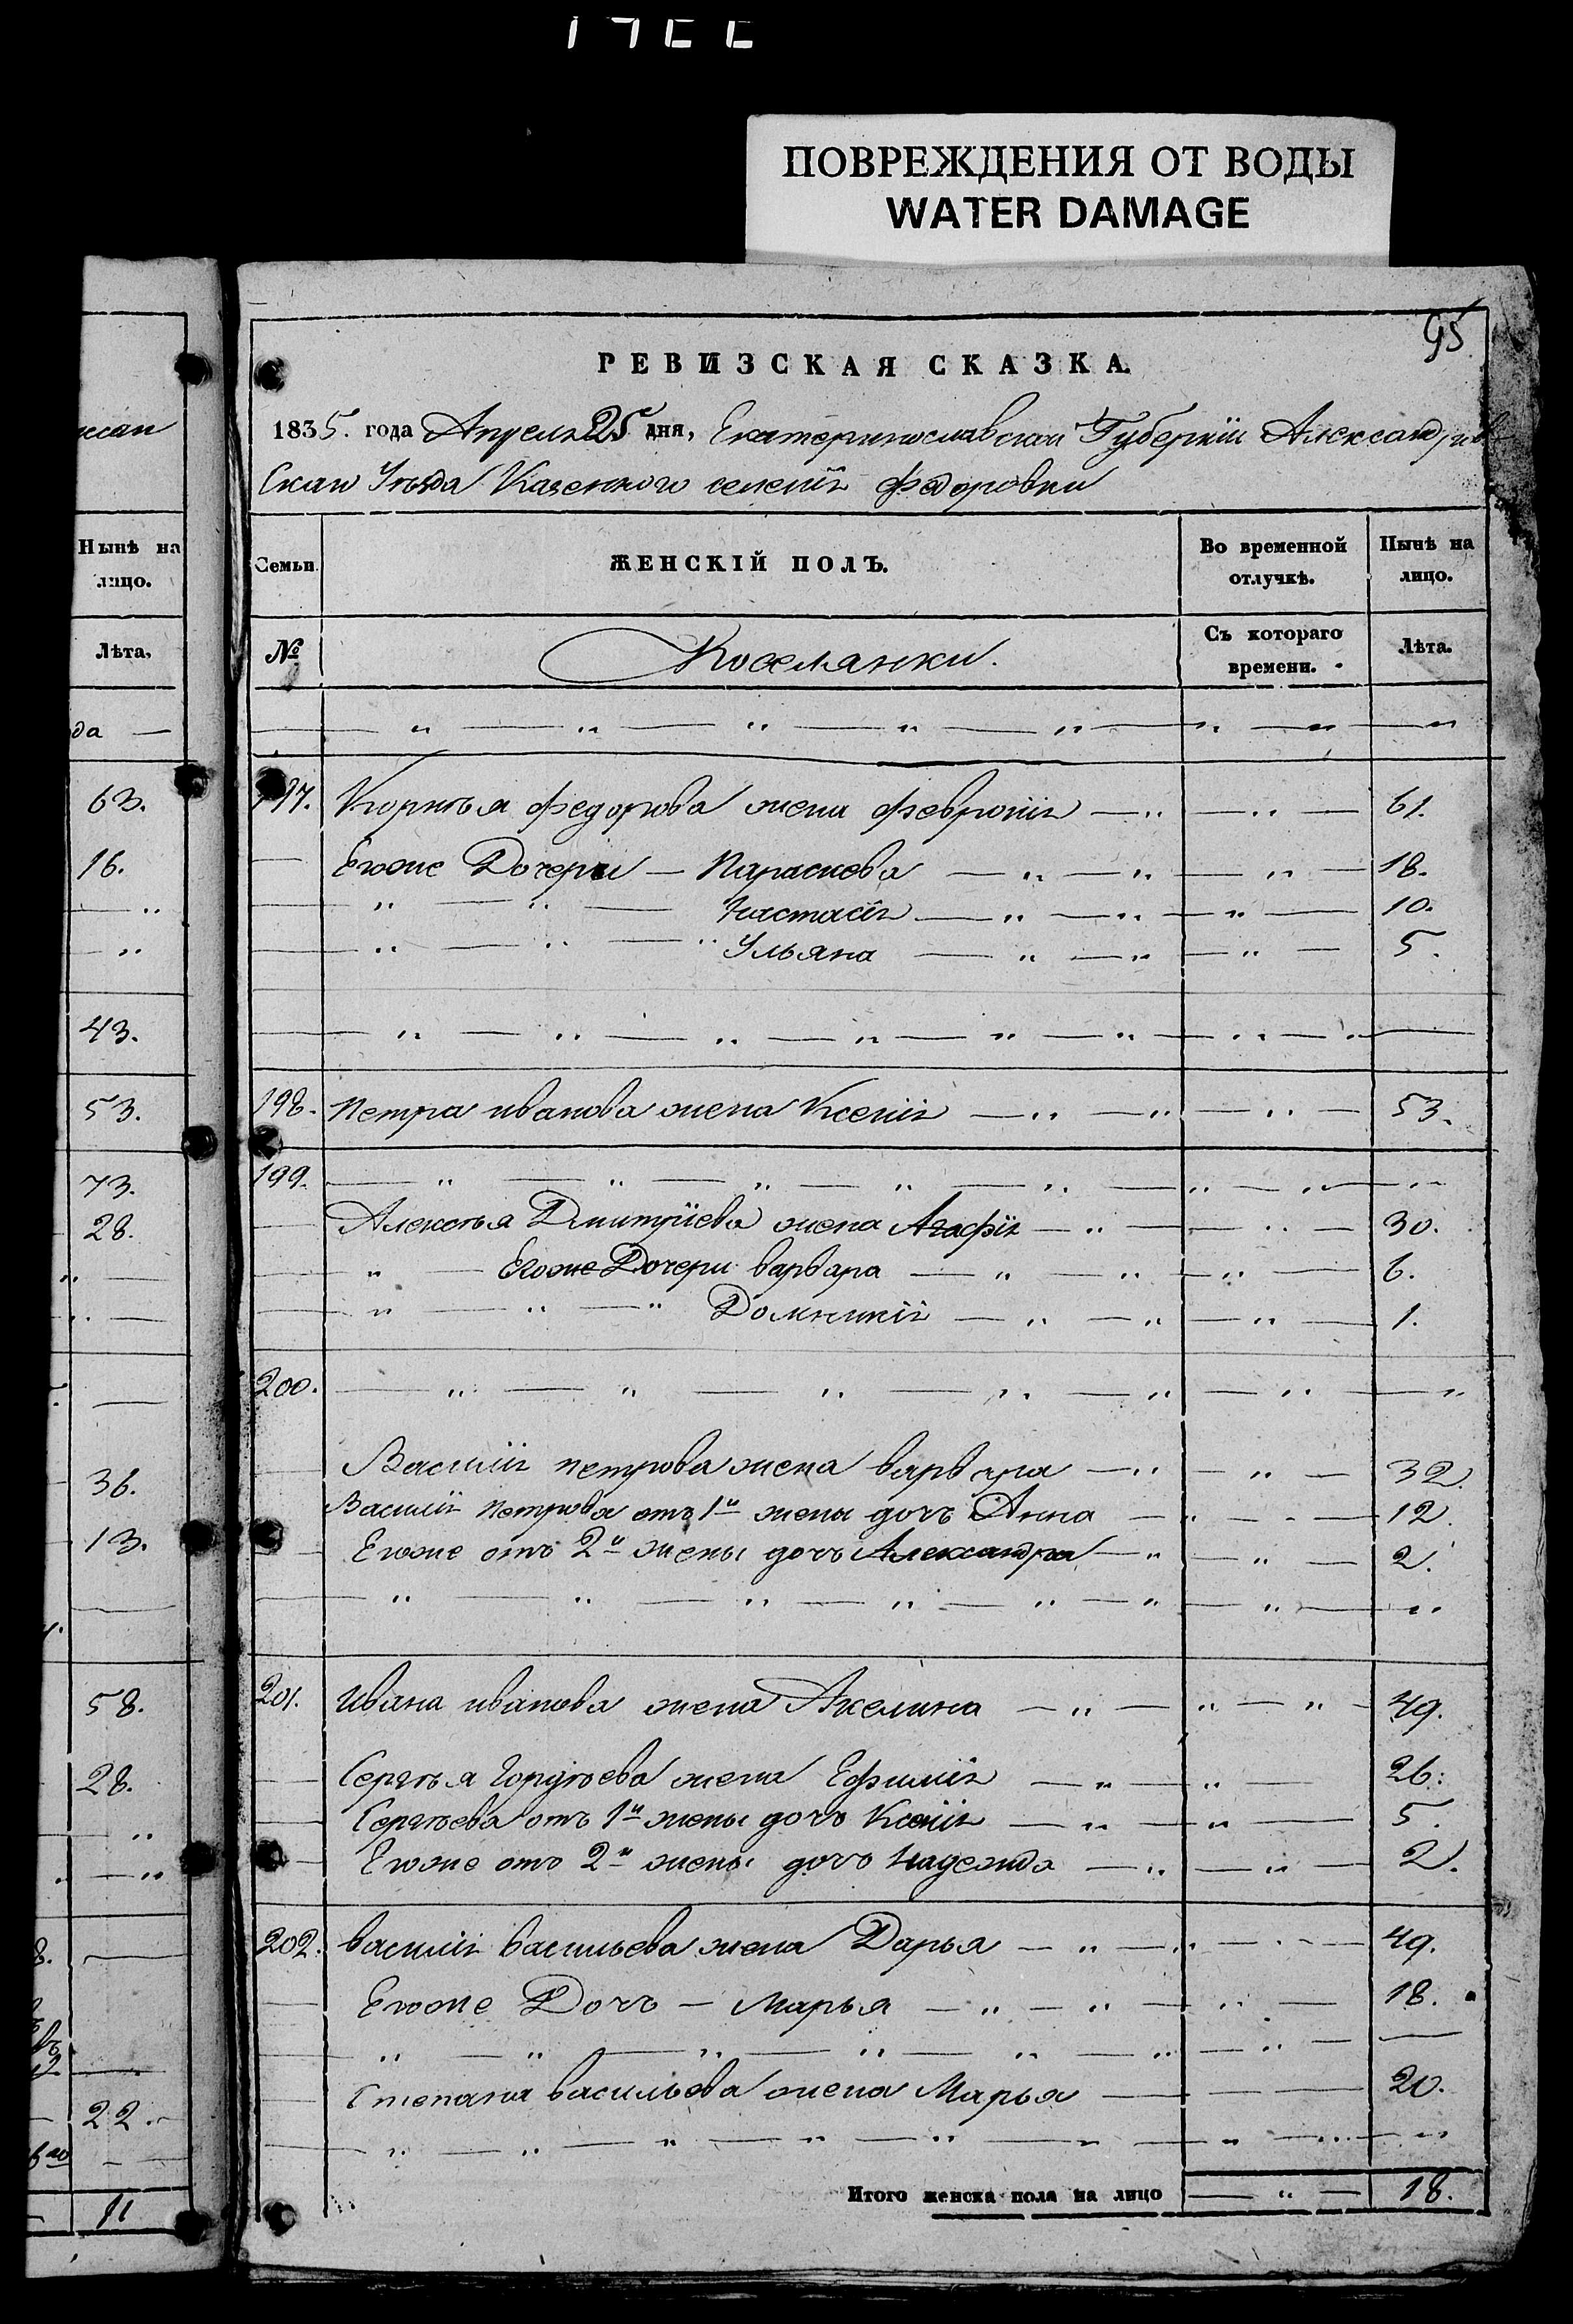 ПОВРЕЖДЕНИЯ ОТ ВОДЫ
WATER DAMAGE
95
РЕВИЗСКАЯ СКАЗКА.
1835. года Апреля 25 дня, Екатеринославской Губернии Александров
Скаго Уезда Казенного селенія Федоровки
Нынѣ на
лицо.
Лѣта,
да —
63.
16.
43.
53.
73.
28.
36.
13.
58.
28.
22.
11
Семьи.
ЖЕНСКІЙ ПОЛЪ.
Во временной
отлучкѣ.
Нынѣ на
лицо.
№
Поселянки.
Съ котораго
времени.
Лѣта.
197. Корнѣя Федорова жена Февронія 61.
Егоже Дочери — Параскева 18.
Настасія 10.
Ульяна 5.
198. Петра иванова жена Ксенія 53.
199.
Алексѣя Дмитріева жена Агафія 30.
Егоже Дочери варвара 6.
Домникія 1.
200.
Василія петрова жена варвара 32.
Василія петрова отъ 1й жены дочъ Анна 12.
Егоже отъ 2й жены дочъ Александра 2.
201. Ивана иванова жена Акелина 49.
Сергѣя Гордѣева жена Ефимія 26.
Сергѣева отъ 1й жены дочъ Ксенія 5.
Егоже отъ 2й жены дочъ Надежда 2.
202. василія васильева жена Дарья 49.
Егоже Дочъ — Марья 18.
Степана васильева жена Марья 20.
Итого женска пола на лицо 18.